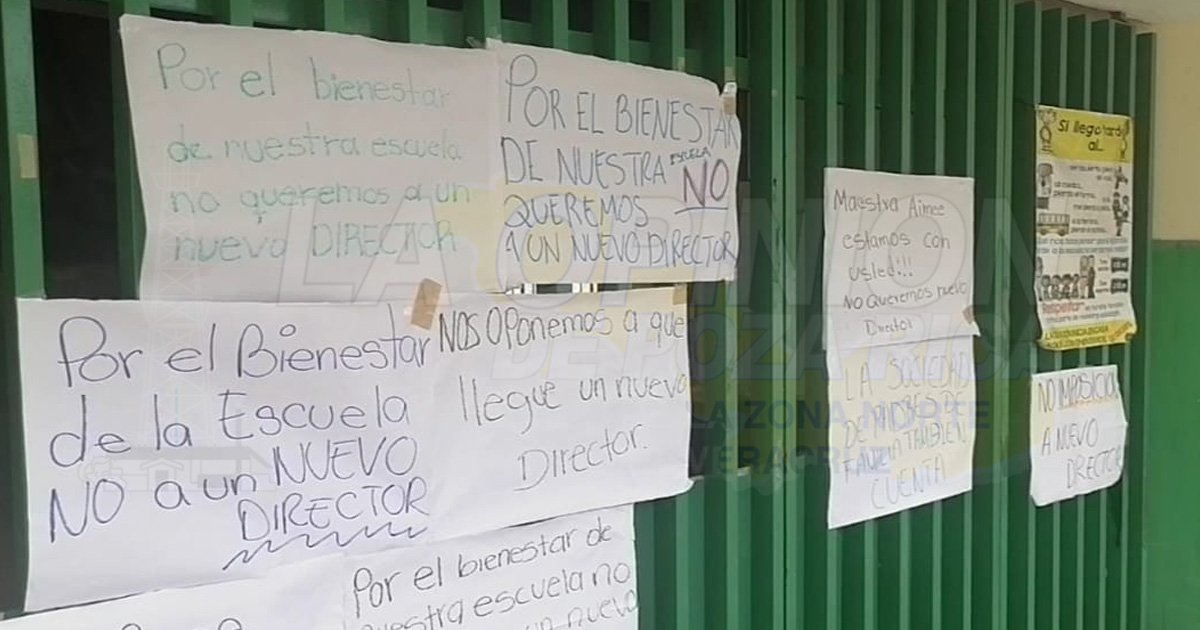 Por el bienestar
de nuestra escuela
no queremos a un
nuevo DIRECTOR
POR EL BIENESTAR
DE NUESTRA ESCUELA
NO
QUEREMOS
A UN NUEVO DIRECTOR
Por el Bienestar
de la Escuela
NO a un NUEVO
DIRECTOR
NOS OPonemos a que
llegue un nuevo
Director.
Por el bienestar de
nuestra escuela no
un nuevo
Maestra Aimee
estamos con
usted!!!
No Queremos nuevo
Director
LA SOCIEDAD
DE PADRES DE
FAMILIA TAMBIEN
CUENTA
Si llego tarde
al...
Respetan
NO IMPOSICION
A NUEVO
DIRECTOR
LA OPINION
DE POZA RICA
LA ZONA NORTE
VERACRUZ